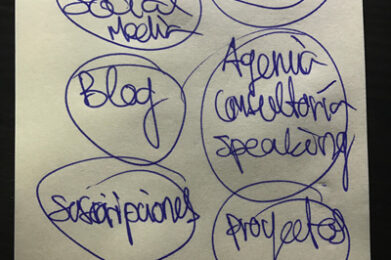 Social
Media
Blog
Agencia
Consultoría
Speaking
Suscripciones
Proyectos